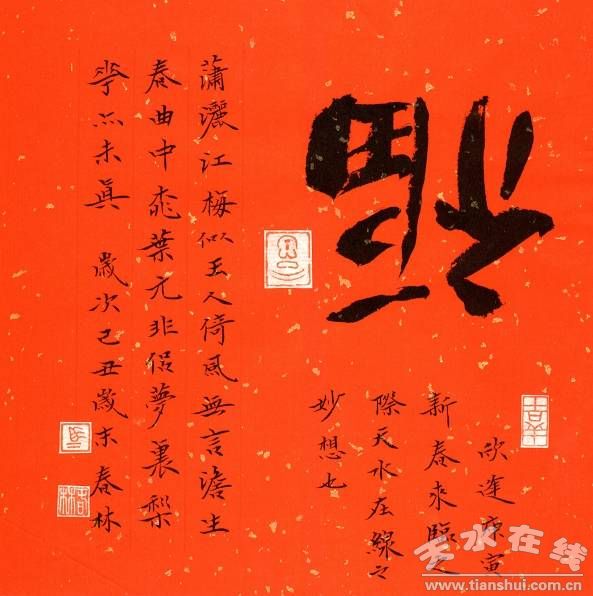 福
欣逢庚寅
新春來臨之
際天水在線之
妙想也
蕭灑江梅似玉人倚風無言澹生
春曲中桃葉元非侶夢裏梨
花亦未眞 歲次己丑歲末春林
天水在线
www.tianshui.com.cn